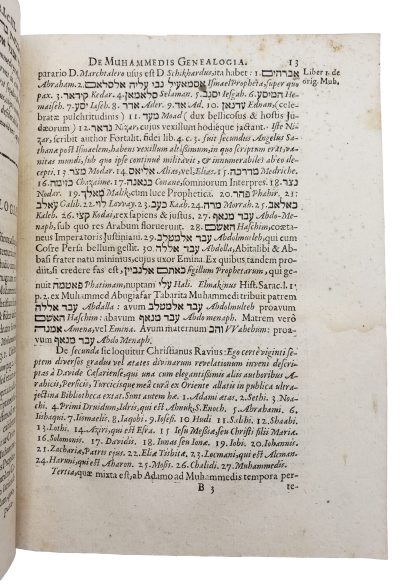 DE MUHAMMEDIS GENEALOGIA. 13
paratio D. Marchtalero usus est D Schikhardus, ita habet: 1. אברהים Liber 1. de
Abraham. 2. אסמאעיל נבי עליה אלסלאם Ismael Propheta, super quo orig. Muh.
pax. 3. קידאר Kedar. 4. סלאמאן Selaman. 5. יסגב Iesgab. 6. המיסע He-
maiseh. 7. יסע Iaseh. 8. אדר Ader. 9. אד Ad. 10. עדנאן Ednan, (cele-
bratæ pulchritudinis) 11. מעד Moad (dux bellicosus & hostis Ju-
dæorum) 12. נזאר Nizar, cujus vexillum hodieque jactant. Iste Ni-
zar, scribit author Fortalit. fidei Lib. 4. c. 3. fuit secundus angelus Sa-
thanæ post Ismaelem, habens vexillum altissimum, in quo scriptum erat, va-
nitas mundi, sub quo ipse continuè militavit, & innumerabiles ab eo ilece-
pti. 13. מצר Modar. 14. אליאס Alias, vel, Elias. 15. מדרכה Medriche.
16. כזימה Chozaime. 17. כנאנה Conane, somniorum Interpres. 18. נצר
Nodar. 19. מאלך Malik, cum luce Prophetica. 20. פהר Phahir. 21. גאלב
Calib. 22. לוי Lovay. 23. כעב Kaab. 24. מרה Morrah. 25. כאלאב
Kaleb. 26. קצי Kodai, rex sapiens & justus. 27. עבד מנאף Abdo-Me-
naph, sub quo res Arabum floruerunt. 28. האשם Haschim, coæta-
neus Imperatoris Justiniani. 29. עבד אלמטלב Abdolmutleb, qui cum
Cosre Persa bellum gessit. 30. עבד אללה Abdella, Abitalibi & Ab-
basi frater natu minimus, cujus uxor Emina. Ex quibus tandem pro-
diit, si credere fas est, כאתם אלנביין sigillum Prophetarum, qui ge-
nuit פאטמה Phatimam, nuptam עלי Hali. Elmakinus Hist. Sarac. l. 1.
p. 2. ex Muhammed Abugiafar Tabarita Muhammedi tribuit patrem
עבד אללה Abdalla: avum עבד אלמטלב Abdolmutleb proavum
האשם Haschim: abavum עבד מנאף Abdo menaph. Matrem verò
אמנה Amena, vel Emina. Avum maternum והב VVahebum: proa-
vum עבד מנאף Abdo Menaph.
De secunda sic loquitur Christianus Ravius: Ego certè viginti se-
ptem diversos gradus vel ætates divinarum revelationum inveni descri-
ptas à Davide Cæsariense, qui una cum elegantissimis aliis authoribus A-
rabicis, Persicis, Turcicisque meâ curâ ex Oriente allatis in publica ultra-
jectina Bibliotheca extat. Sunt autem hæ. 1. Adami ætas, 2. Sethi, 3. Noa-
chi, 4. Primi Druidum, Idris, qui est Abnuk, S. Enoch. 5. Abrahami. 6.
Ishaqui. 7. Ismaelis. 8. Iaqobi. 9. Iosefi. 10. Hudi. 11. Salihi. 12. Shaabi.
13. Lothi. 14. Aziri, qui est Esra. 15. Iesu Messiæ, seu Christi filii Mariæ.
16. Solomonis. 17. Davidis. 18. Iunas seu Ionæ. 19. Iobi. 20. Iohannis.
21. Zachariæ, Patris ejus. 22. Eliæ Tisbitæ. 23. Locmani, qui est Alcman.
24. Haruni, qui est Aharon. 25. Mosis. 26. Chalidi. 27. Muhammedis.
Tertia, quæ mixta est, ab Adamo ad Muhammedis tempora per-
B 3 te-